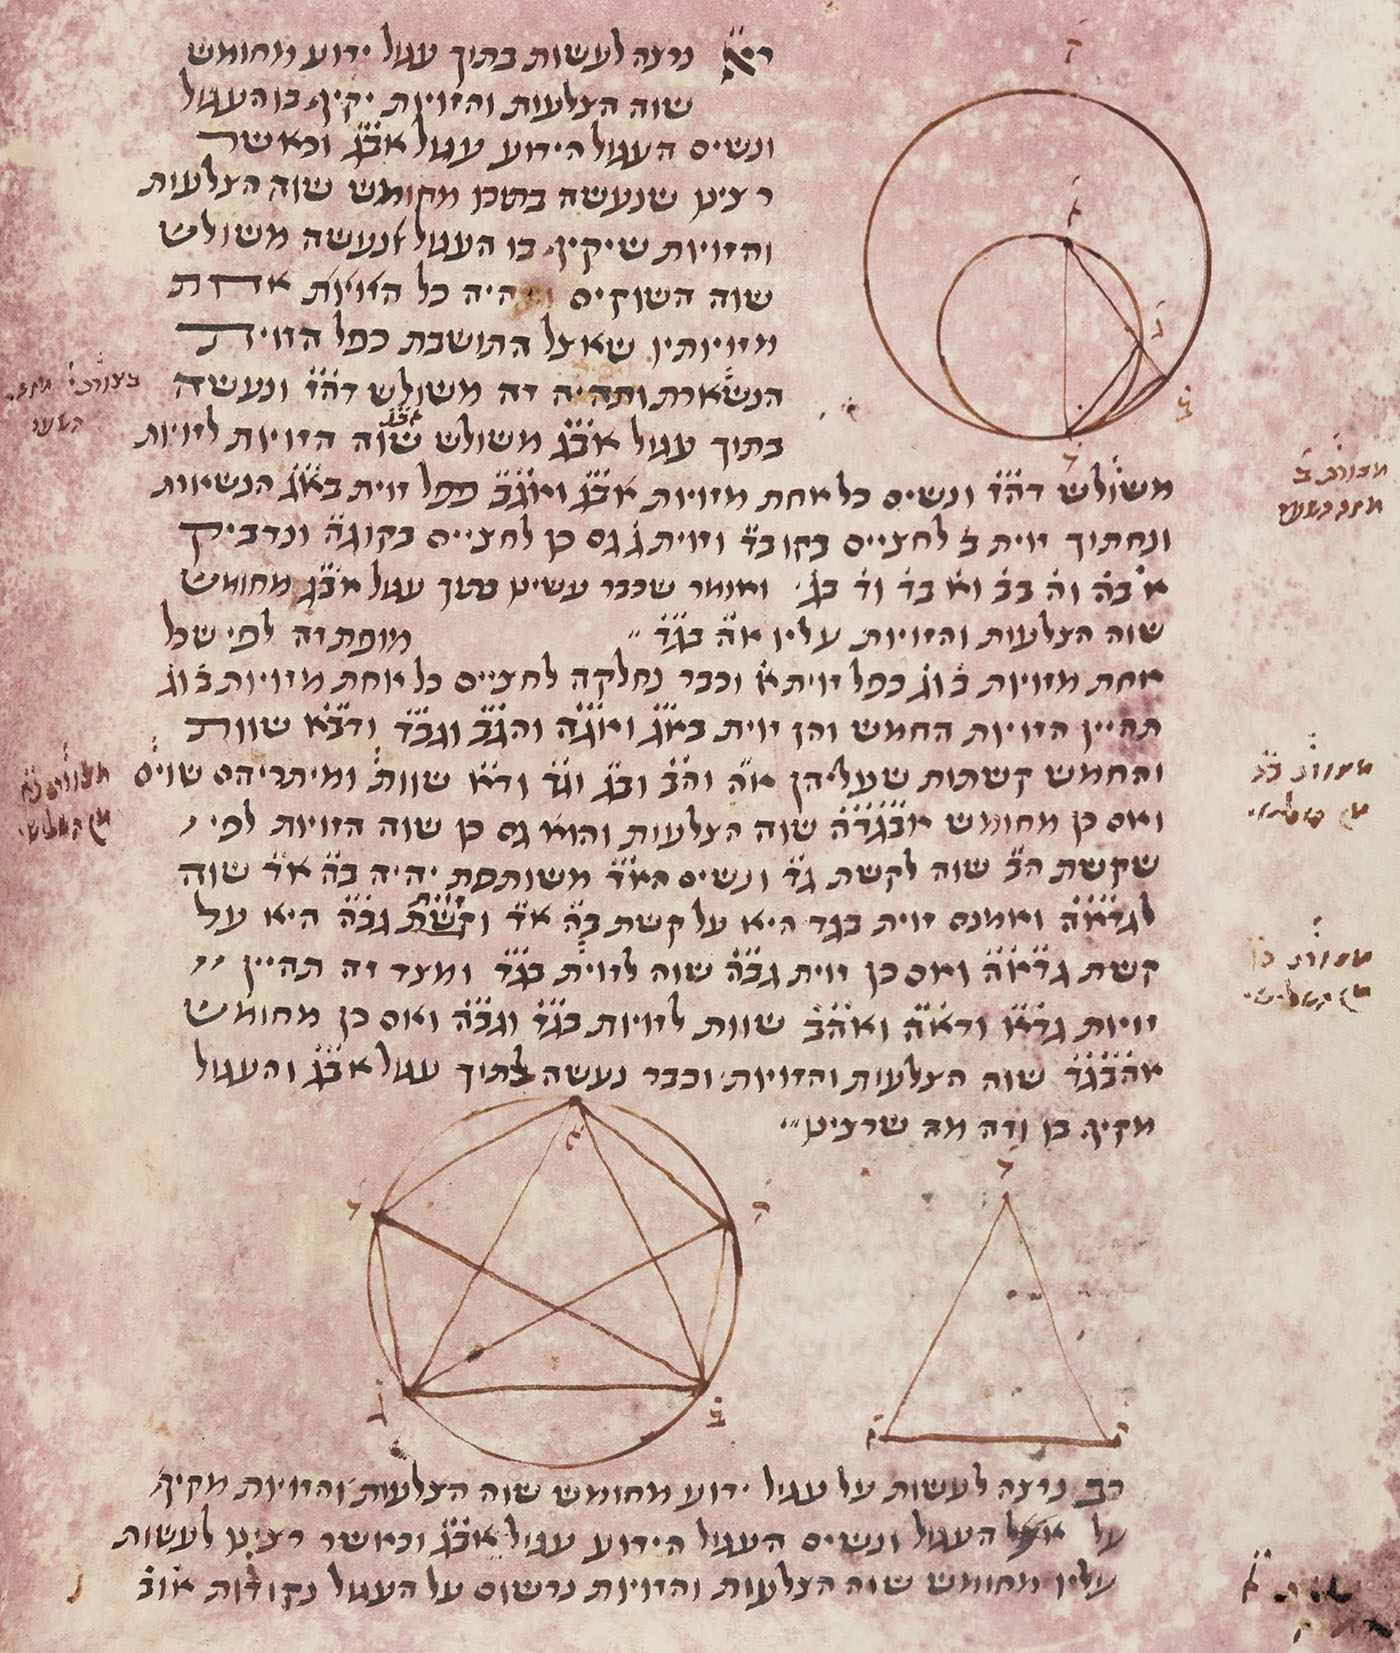 רי״א נרצה לעשות בתוך עגול ידוע מחומש
שוה הצלעות והזויות יקיף בו העגול
ונשים העגול הידוע עגול אבג וכאשר
רצינו שנעשה בתוכו מחומש שוה הצלעות
והזויות שיקיף בו העגול נעשה משולש
שוה השוקים יהיה כל הזויות אחת
מזויותיו שאצל התושבת כפל הזוית
הנשארת ותהיה זה משולש דהז ונעשה
בתוך עגול אבג משולש אבג שוה הזויות לזויות
משולש דהז ונשים כל אחת מזויות אבג ואגב כפל זוית באג הנשארת
ונחתוך זוית ב לחציים בקו בד וזוית ג גם כן לחציים בקו גה ונדביק
א בה וה בב וא בד וד בג ואומר שכבר עשינו בתוך עגול אבג מחומש
שוה הצלעות והזויות עליו אה בגד מופת זה לפי שכל
אחת מזויות ב וג כפל זוית א וכבר נחלקה לחציים כל אחת מזויות ב וג
תהיין הזויות החמש והן זוית באג ואגה והגב וגבד ודבא שוות
והחמש קשתות שעליהן אה והב ובג וגד ודא שוות ומיתריהם שוים
ואם כן מחומש אבגדה שוה הצלעות והוא גם כן שוה הזויות לפי
שקשת הב שוה לקשת גד ונשים האד משותפת יהיה בה אד שוה
לגדאה ואמנם זוית בגד היא על קשת בה אד וזוית גבה היא על
קשת גדאה ואם כן זוית גבה שוה לזוית בגד ומצד זה תהיין
זויות גדא ודאה ואהב שוות לזויות בגד וגבה ואם כן מחומש
אהבגד שוה הצלעות והזויות וכבר נעשה בתוך עגול אבג והעגול
מקיף בו וזה מה שרצינו
ה
א
ג
ב
ד
א
ד
ה
ג
ב
ד
רי״ב נרצה לעשות על עגול ידוע מחומש שוה הצלעות והזויות מקיף
על העגול ונשים העגול הידוע עגול אבג וכאשר רצינו לעשות
עליו מחומש שוה הצלעות והזויות נרשום על העגול נקודות א וב